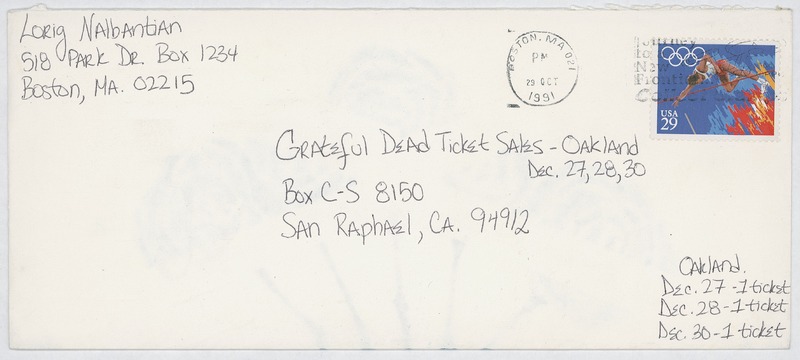 Lorig Nalbantian
518 Park Dr. Box 1234
Boston, MA. 02215
BOSTON, MA 021
PM
29 OCT
1991
Journey
to
New
Frontiers
USA
29
Grateful Dead Ticket Sales - Oakland
Dec. 27, 28, 30
Box C-S 8150
San Raphael, CA. 94912
Oakland.
Dec. 27 - 1 ticket
Dec. 28 - 1 ticket
Dec. 30 - 1 ticket